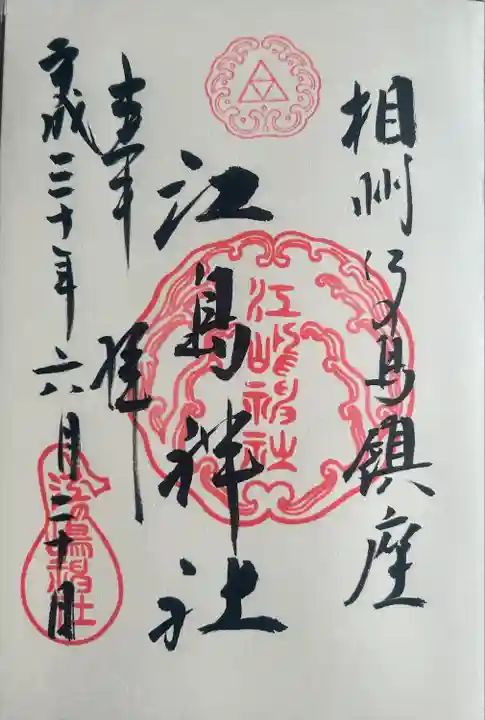 相州江の島鎮座
江島神社
江嶋神社
奉拝
平成三十年六月二十日